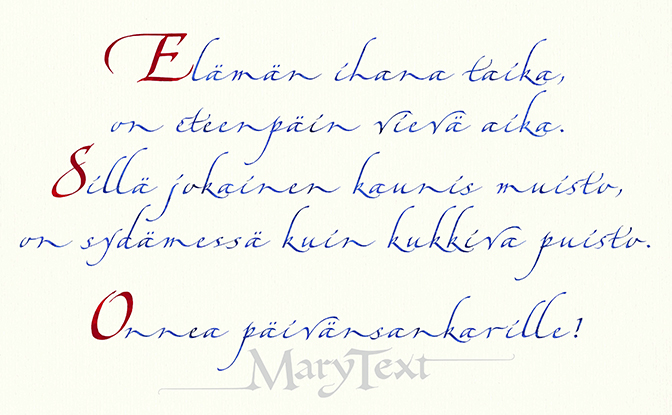 Elämän ihana taika,
on eteenpäin vievä aika.
Sillä jokainen kaunis muisto,
on sydämessä kuin kukkiva puisto.
Onnea päivänsankarille!
MaryText